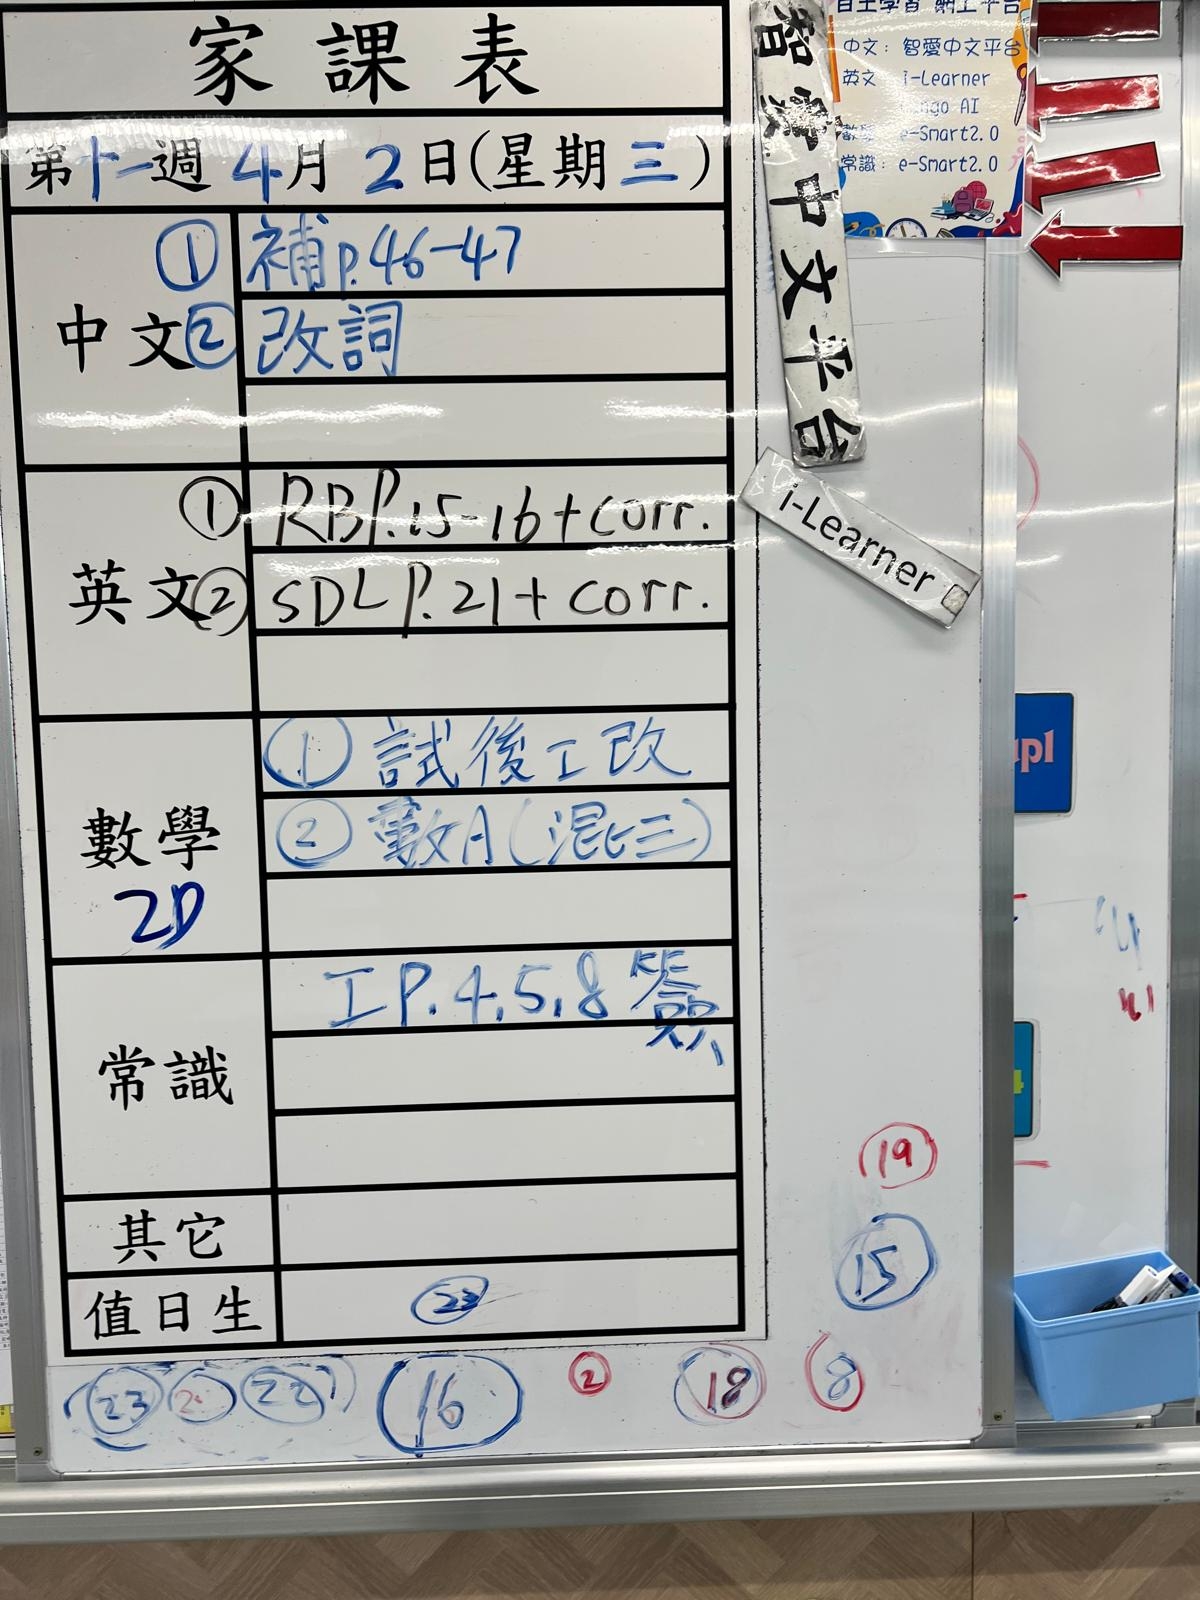 家課表
第十一週 4月2日(星期三)
中文
① 補P.46-47
② 改詞
英文
① RB P.15-16+corr.
② SDL P.21+corr.
數學
2D
① 試後工改
② 數A(混比三)
常識
工P.4,5,8 簽
其它
值日生
23
23
22
16
2
18
8
15
19
智愛中文平台
i-Learner
自主學習 網上平台
中文：智愛中文平台
英文：i-Learner
Lingo AI
數學：e-Smart2.0
常識：e-Smart2.0